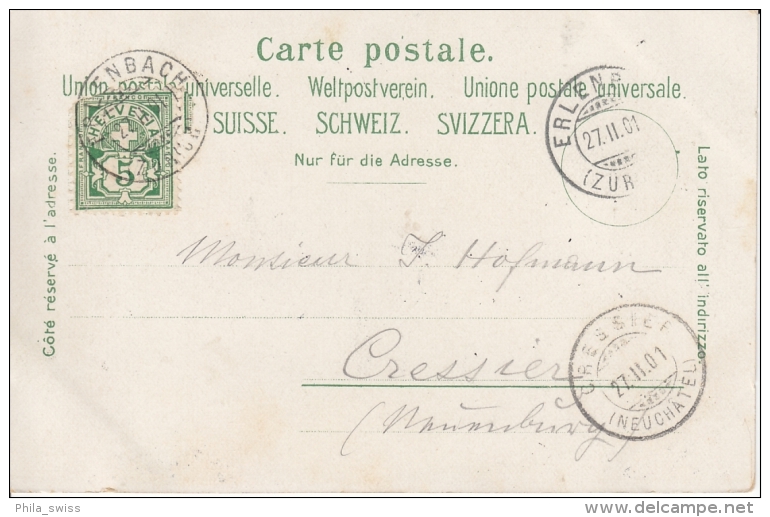 Carte postale.
Union postale universelle. Weltpostverein. Unione postale universale.
SUISSE. SCHWEIZ. SVIZZERA.
Nur für die Adresse.
Côté réservé à l'adresse.
Lato riservato all' indirizzo.
HELVETIA
5
ERLENB
27.II.01
(ZÜR
Monsieur J. Hofmann
Cressier
(Neuenburg)
CRESSIER
27.II.01
(NEUCHÂTEL)
Phila_swiss
delcampe.net